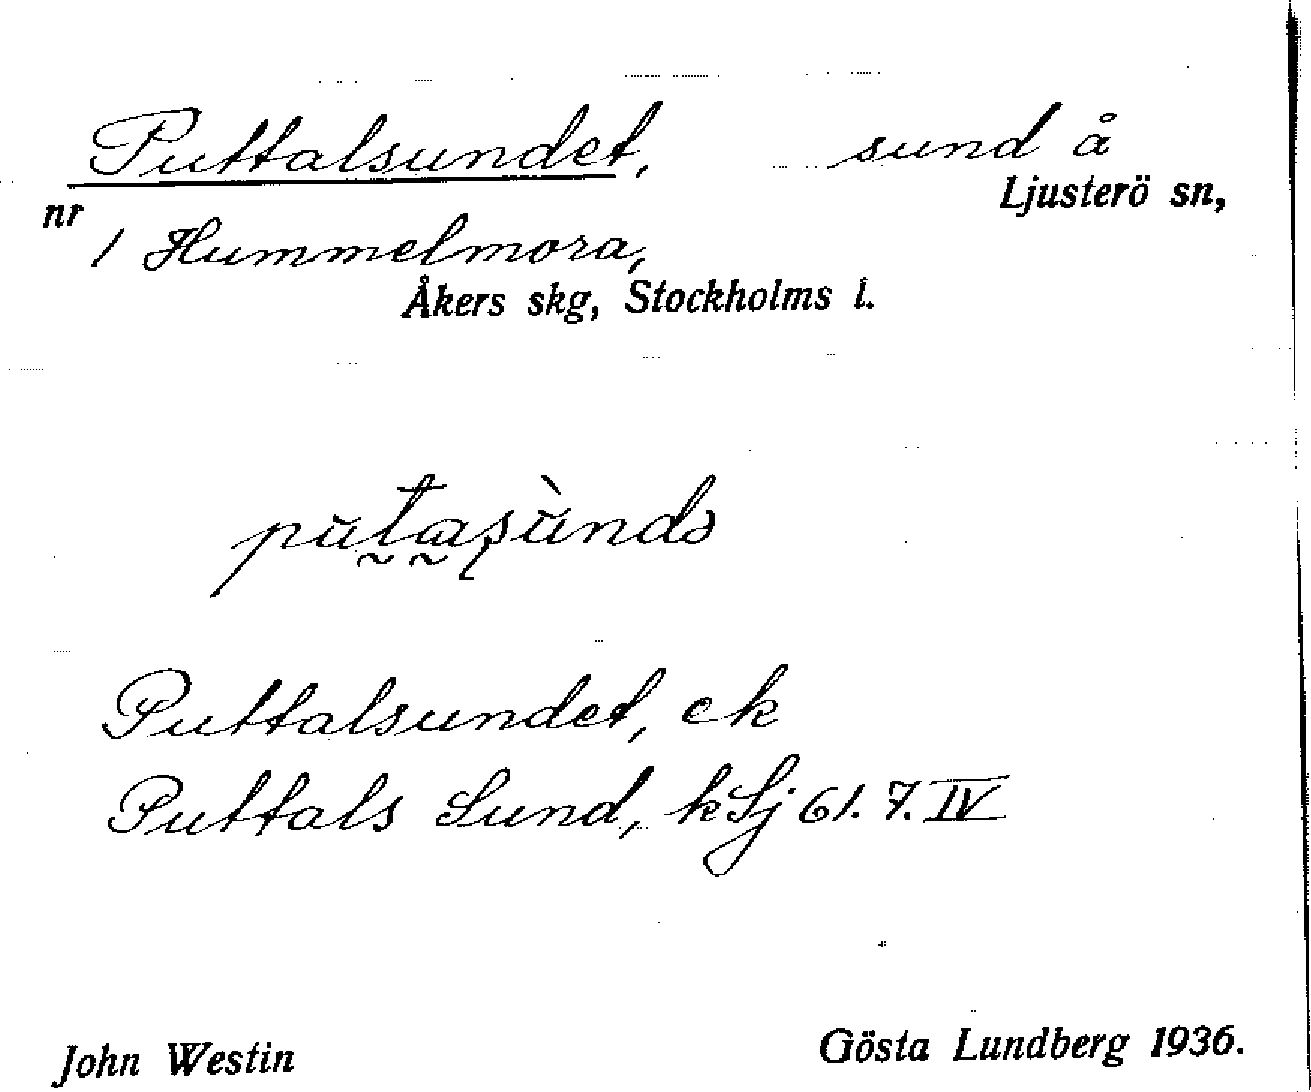 Puttalsundet, sund å
Ljusterö sn,
nr
1 Hummelmora,
Åkers skg, Stockholms l.
Puttalsundet, ek
Puttals Sund, kSj 61. 7. IV
John Westin
Gösta Lundberg 1936.